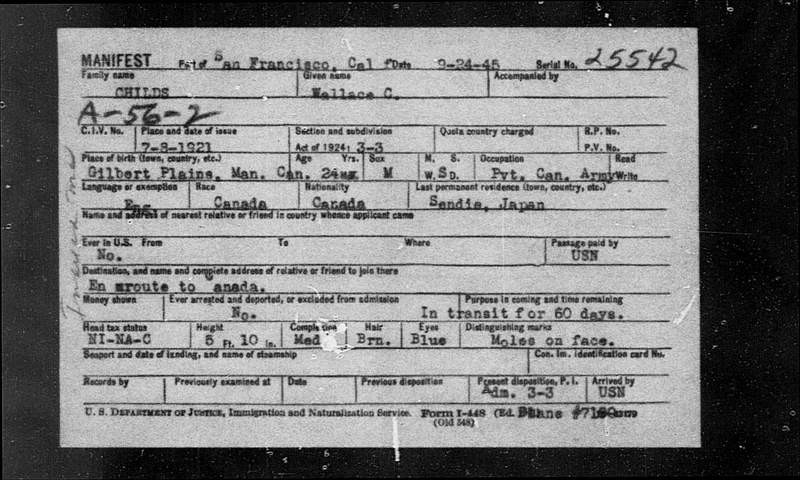 MANIFEST Port of San Francisco, Cal Date 9-24-45 Serial No. 25542
Family name Given name Accompanied by
CHILDS Wallace C.
A-56-2
C.I.V. No. Place and date of issue Section and subdivision Quota country charged R.P. No.
7-8-1921 Act of 1924: 3-3 P.V. No.
Place of birth (town, country, etc.) Age Yrs. Sex M. S. Occupation Read
Gilbert Plains, Man. Can. 24 M W. SD. Pvt. Can. Army Write
Language or exemption Race Nationality Last permanent residence (town, country, etc.)
Eng Canada Canada Sendie, Japan
Name and address of nearest relative or friend in country whence applicant came
Ever in U.S. From To Where Passage paid by
No. USN
Destination, and name and complete address of relative or friend to join there
En route to anada.
Money shown Ever arrested and deported, or excluded from admission Purpose in coming and time remaining
No. In transit for 60 days.
Head tax status Height Complexion Hair Eyes Distinguishing marks
NI-NA-C 5 Ft. 10 In. Med Brn. Blue Moles on face.
Seaport and date of landing, and name of steamship Con. Im. Identification card No.
Records by Previously examined at Date Previous disposition Present disposition, P.I. Arrived by
Adm. 3-3 USN
U. S. DEPARTMENT OF JUSTICE, Immigration and Naturalization Service. Form I-448 (Ed.
(Old 548)